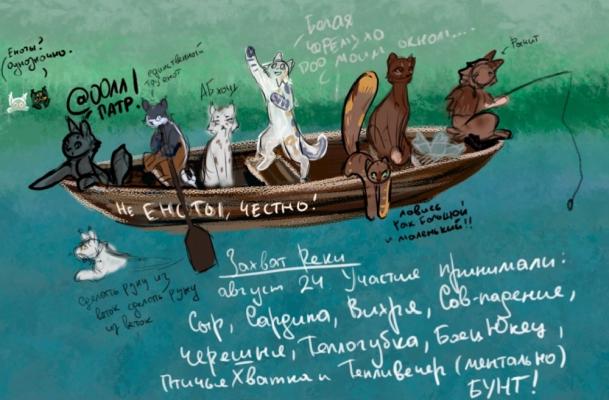 Еноты?
(однозначно.
@ООЛЛ1
ПАТР.
единственный
трудяга
АБхочу
Белая
черемуха
под моим окном....
Рамит
Не ЕНОТЫ, ЧЕСТНО!
ловись
как большой
и маленький!!
сделать руку из
веток сделать руку
из веток
Захват Реки
август 24 Участие принимали:
Сыр, Сардина, Вихря, Сов-падение,
Черешня, Теплогубка, Боец Юкец,
Птичья Хватка и Тепливечер (ментально)
БУНТ!